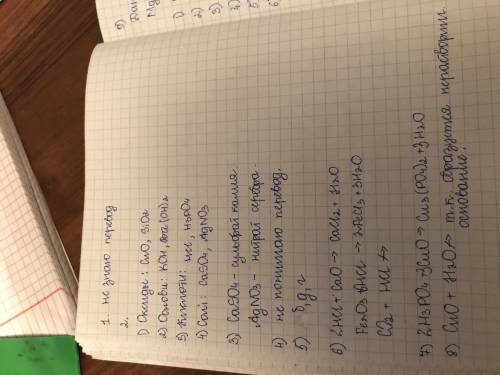 1. не знаю перевод
2.
1) Оксиди: CuO, SiO2
2) Основи: KOH, Ba(OH)2
3) Кислоти: HCl, H3PO4
4) Солі: CaSO4, AgNO3
3) CaSO4 - сульфат калия
AgNO3 - нитрат серебра.
4) не понимаю перевод.
5) б, д, г
6) 2HCl + CaO → CaCl2 + H2O
Fe2O3 6HCl → 2FeCl3 + 3H2O
CO2 + HCl ↛
7) 2H3PO4 + 3CuO → Cu3(PO4)2 + 3H2O
8) CuO + H2O ↛ т.к. образуется нерастворим.
основание.
9)
1)
2)
3)
4)
5)
6)